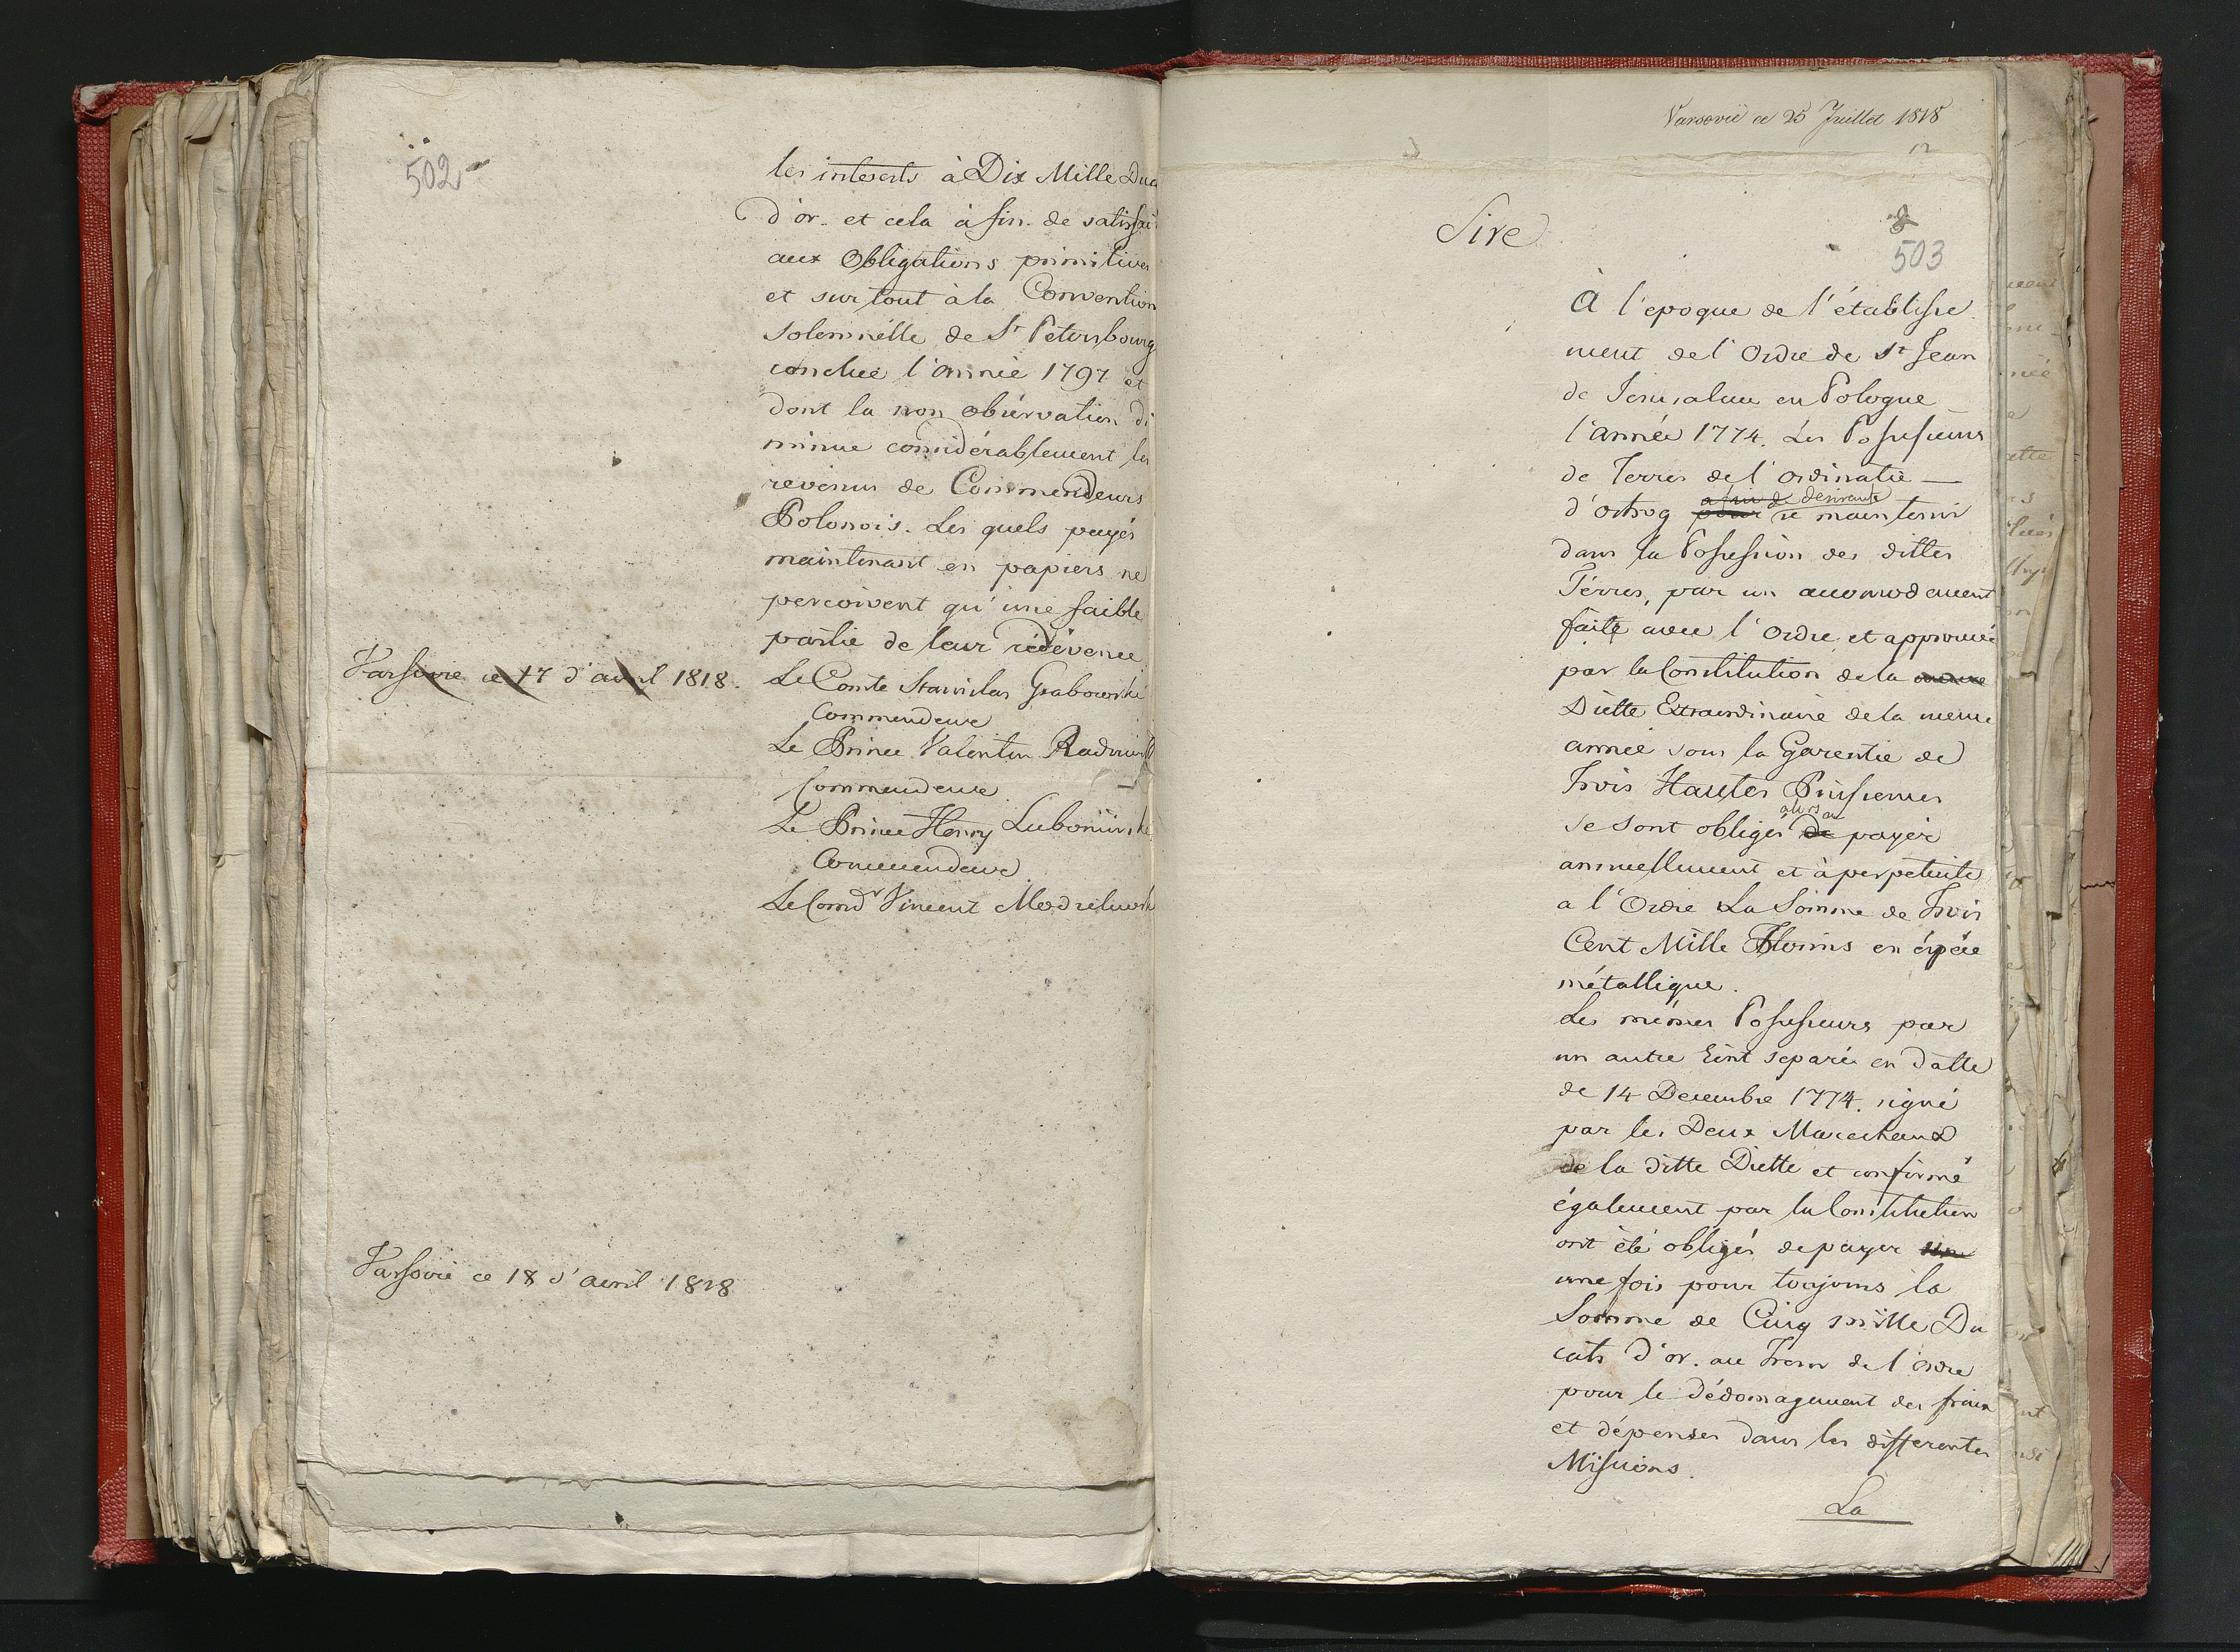 502
les interests à Dix Mille Duc
d'or. et cela à fin de satisfai
aux Obligations primitives
et sur tout à la Convention
solemnélle de St Petersbourg
conclue l'année 1797 et
dont la non observation di
minue considérablement les
revenus de Commendeurs
Polonois. Les quels payés
maintenant en papiers ne
percoivent qu'une faible
partie de leur rédévence
Varsovie ce 17 d'avril 1818.
Le Comte Stanislas Grabowski
Commendeur
Le Prince Valentin Radziwill
Commendeur
Le Prince Henry Lubomirski
Commendeur
Le Comdr Vincent
Varsovie ce 18 d'avril 1818
Varsovie ce 25 Juillet 1818
12
Sire
503
À l'epoque de l'établisse
ment de l'Ordre de St Jean
de Jerusalem en Pologne
l'année 1774. Les Possesseurs
de Terres de l'Ordinatie
d'ostrog pour afin de desirants se maintenir
dans la Possession des dittes
Térres, par un accomodement
faite avec l'Ordre et approuvé
par la Constitution de la meme
Diette Extraordinaire de la meme
année sous la Garentie de
Trois Hautes Puissences
se sont obligés de alors a payér
annuellement et à perpetuité
a l'Ordre La Somme de Trois
Cent Mille Florins en éspéce
métallique.
Les mémes Possesseurs par
un autre Ecrit separé en datte
de 14 Decembre 1774. signé
par les Deux Marechaux
de la ditte Diette et confirmé
également par la Constitution
ont été obligés de payer une
une fois pour toujours la
Somme de Cinq mille Du
cats d'or. au Tresor de l'Ordre
pour le dédomagement des fraix
et dépenses dans les differentes
Missions.
La